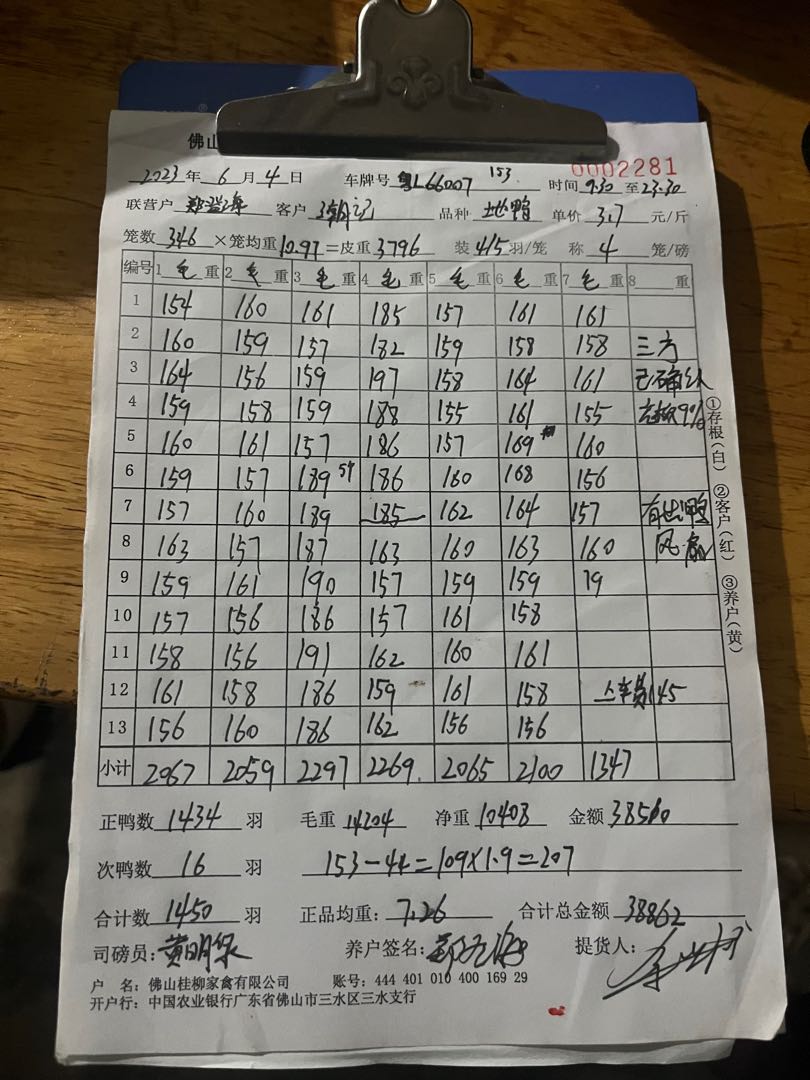 佛山
0002281
2023年6月4日 车牌号 粤L66007 153 时间 9:30至23:30
联营户 客户 潮记 品种 地鸭 单价 3.7 元/斤
笼数 346 ×笼均重 10.97 =皮重 3796 装 4/5 羽/笼 称 4 笼/磅
编号 1 毛 重 2 毛 重 3 毛 重 4 毛 重 5 毛 重 6 毛 重 7 毛 重 8 重
1 154 160 161 185 157 161 161
2 160 159 157 182 159 158 158 三方
3 164 156 159 197 158 164 161 已确认
4 159 158 159 188 155 161 155 9%
5 160 161 157 186 157 169 160
6 159 157 189 54 186 160 168 156
7 157 160 189 185 162 164 157 有出鸭
8 163 157 187 163 160 163 160 风扇
9 159 161 190 157 159 159 79
10 157 156 186 157 161 158
11 158 156 191 162 160 161
12 161 158 186 159 161 158 上车费145
13 156 160 186 162 156 156
小计 2067 2059 2297 2269 2065 2100 1347
①存根(白) ②客户(红) ③养户(黄)
正鸭数 1434 羽 毛重 14204 净重 10408 金额 38510
次鸭数 16 羽 153-44=109×1.9=207
合计数 1450 羽 正品均重: 7.26 合计总金额 38862
司磅员: 黄明 养户签名: 提货人:
户 名: 佛山桂柳家禽有限公司 账号: 444 401 010 400 169 29
开户行: 中国农业银行广东省佛山市三水区三水支行